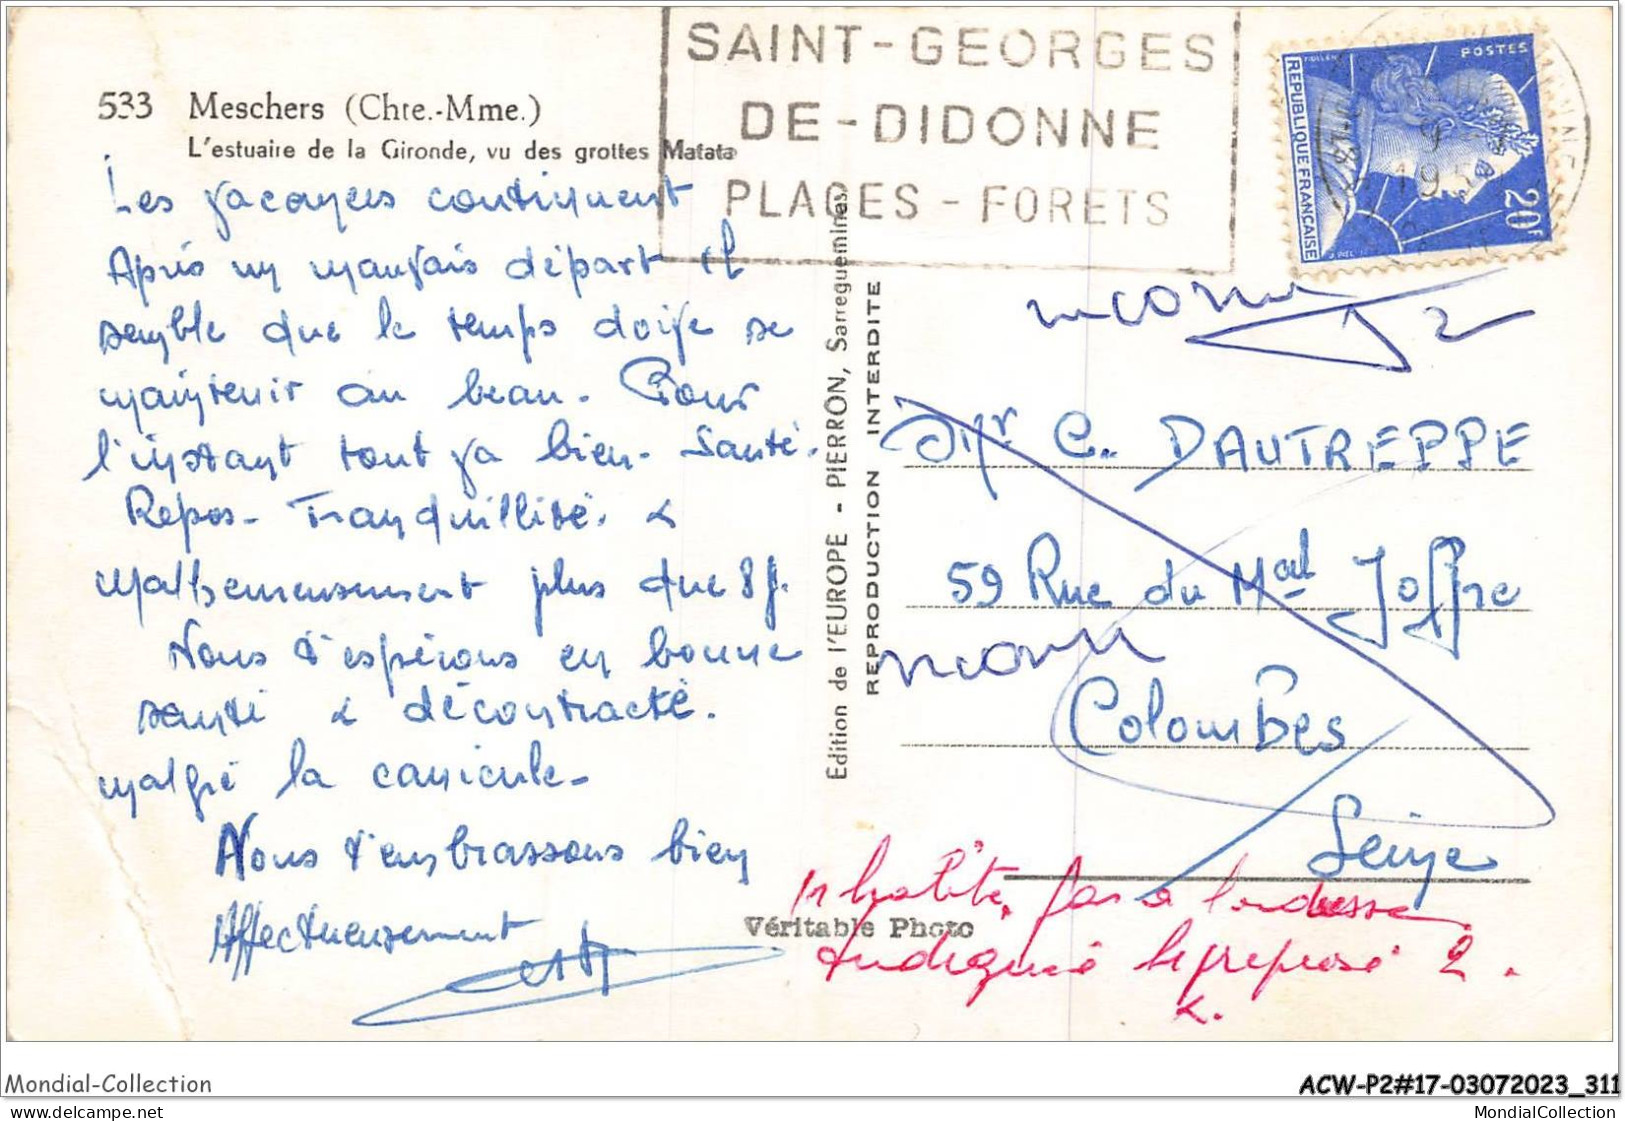 533 Meschers (Chte.-Mme.)
L'estuaire de la Gironde, vu des grottes Matata
SAINT-GEORGES
DE-DIDONNE
PLAGES - FORETS
POSTES
REPUBLIQUE FRANÇAISE
20F
Les vacances continuent
Après un mauvais départ il
semble que le temps doive se
maintenir au beau. Pour
l'instant tout va bien. Santé.
Repos. Tranquillité. &
Malheureusement plus que 8 j.
Nous t'espérons en bonne
santé & décontracté.
malgré la canicule.
Nous t'embrassons bien
Affectueusement
Edition de l'EUROPE - PIERRON, Sarreguemines
REPRODUCTION INTERDITE
inconnu
2
Mr C. DAUTREPPE
59 Rue du Mal Joffre
inconnu
Colombes
Seine
Véritable Photo
n'habite pas à l'adresse
indiquée le préposé 2.
Mondial-Collection
www.delcampe.net
ACW-P2#17-03072023_311
MondialCollection